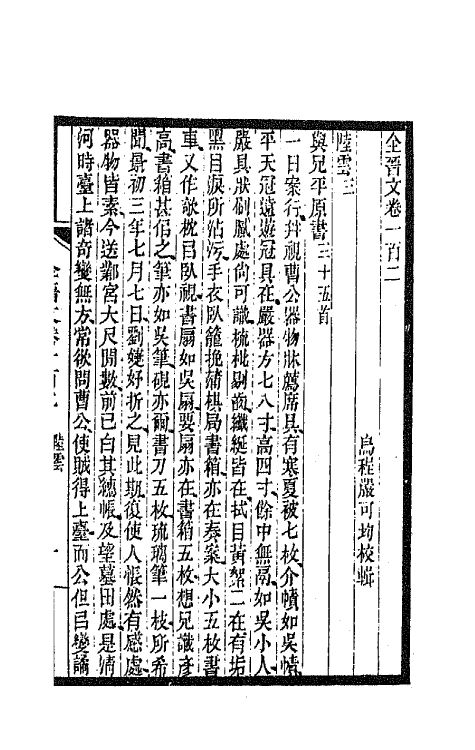 全晉文卷一百二
烏程嚴可均校輯
陸雲三
與兄平原書三十五首
一日案行并視曹公器物牀薦席具有寒夏被七枚介幘如吳幘
平天冠遠遊冠具在嚴器方七八寸高四寸餘中無鬲如吳小人
嚴具狀刷膩處尚可識梳枇剔齒纖綖皆在拭目黃絮二在有垢
黑目淚所沾污手衣臥籠挽蒲棋局書箱亦在奏案大小五枚書
車又作欹枕㠯臥視書扇如吳扇要扇亦在書箱五枚想兄識彥
高書箱甚佀之筆亦如吳筆硯亦爾書刀五枚琉璃筆一枝所希
聞景初三年七月七日劉婕妤折之見此期復使人悵然有感處
器物皆素今送鄴宮大尺閒數前已白其繐帳及望墓田處是淸
河時臺上諸奇變無方常欲問曹公使賊得上臺而公但㠯變譎
全晉文卷一百二
陸雲
一